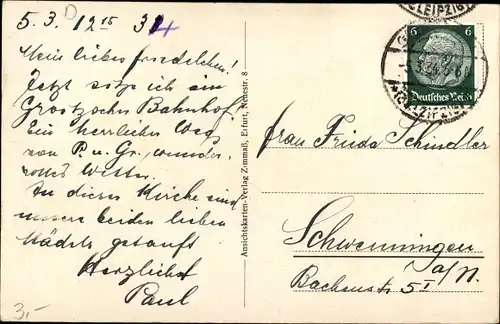 5.3. 12¹⁵ 34
Mein liebes Friedelchen!
Jetzt sitze ich am
Grotzscher Bahnhof.
Ein herrlicher Weg
von P. u. Gr., wunder-
volles Wetter.
In dieser Kirche sind
unsere beiden lieben
Mädels getauft
Herzlichst
Paul
3,-
Ansichtskarten-Verlag Zemmaß, Erfurt, Neuestr. 8
(LEIPZIG)
6 6
Deutsches Reich
(LEIPZIG)
Frau Frieda Schindler
Schwenningen
a/N.
Bachenstr. 5 I